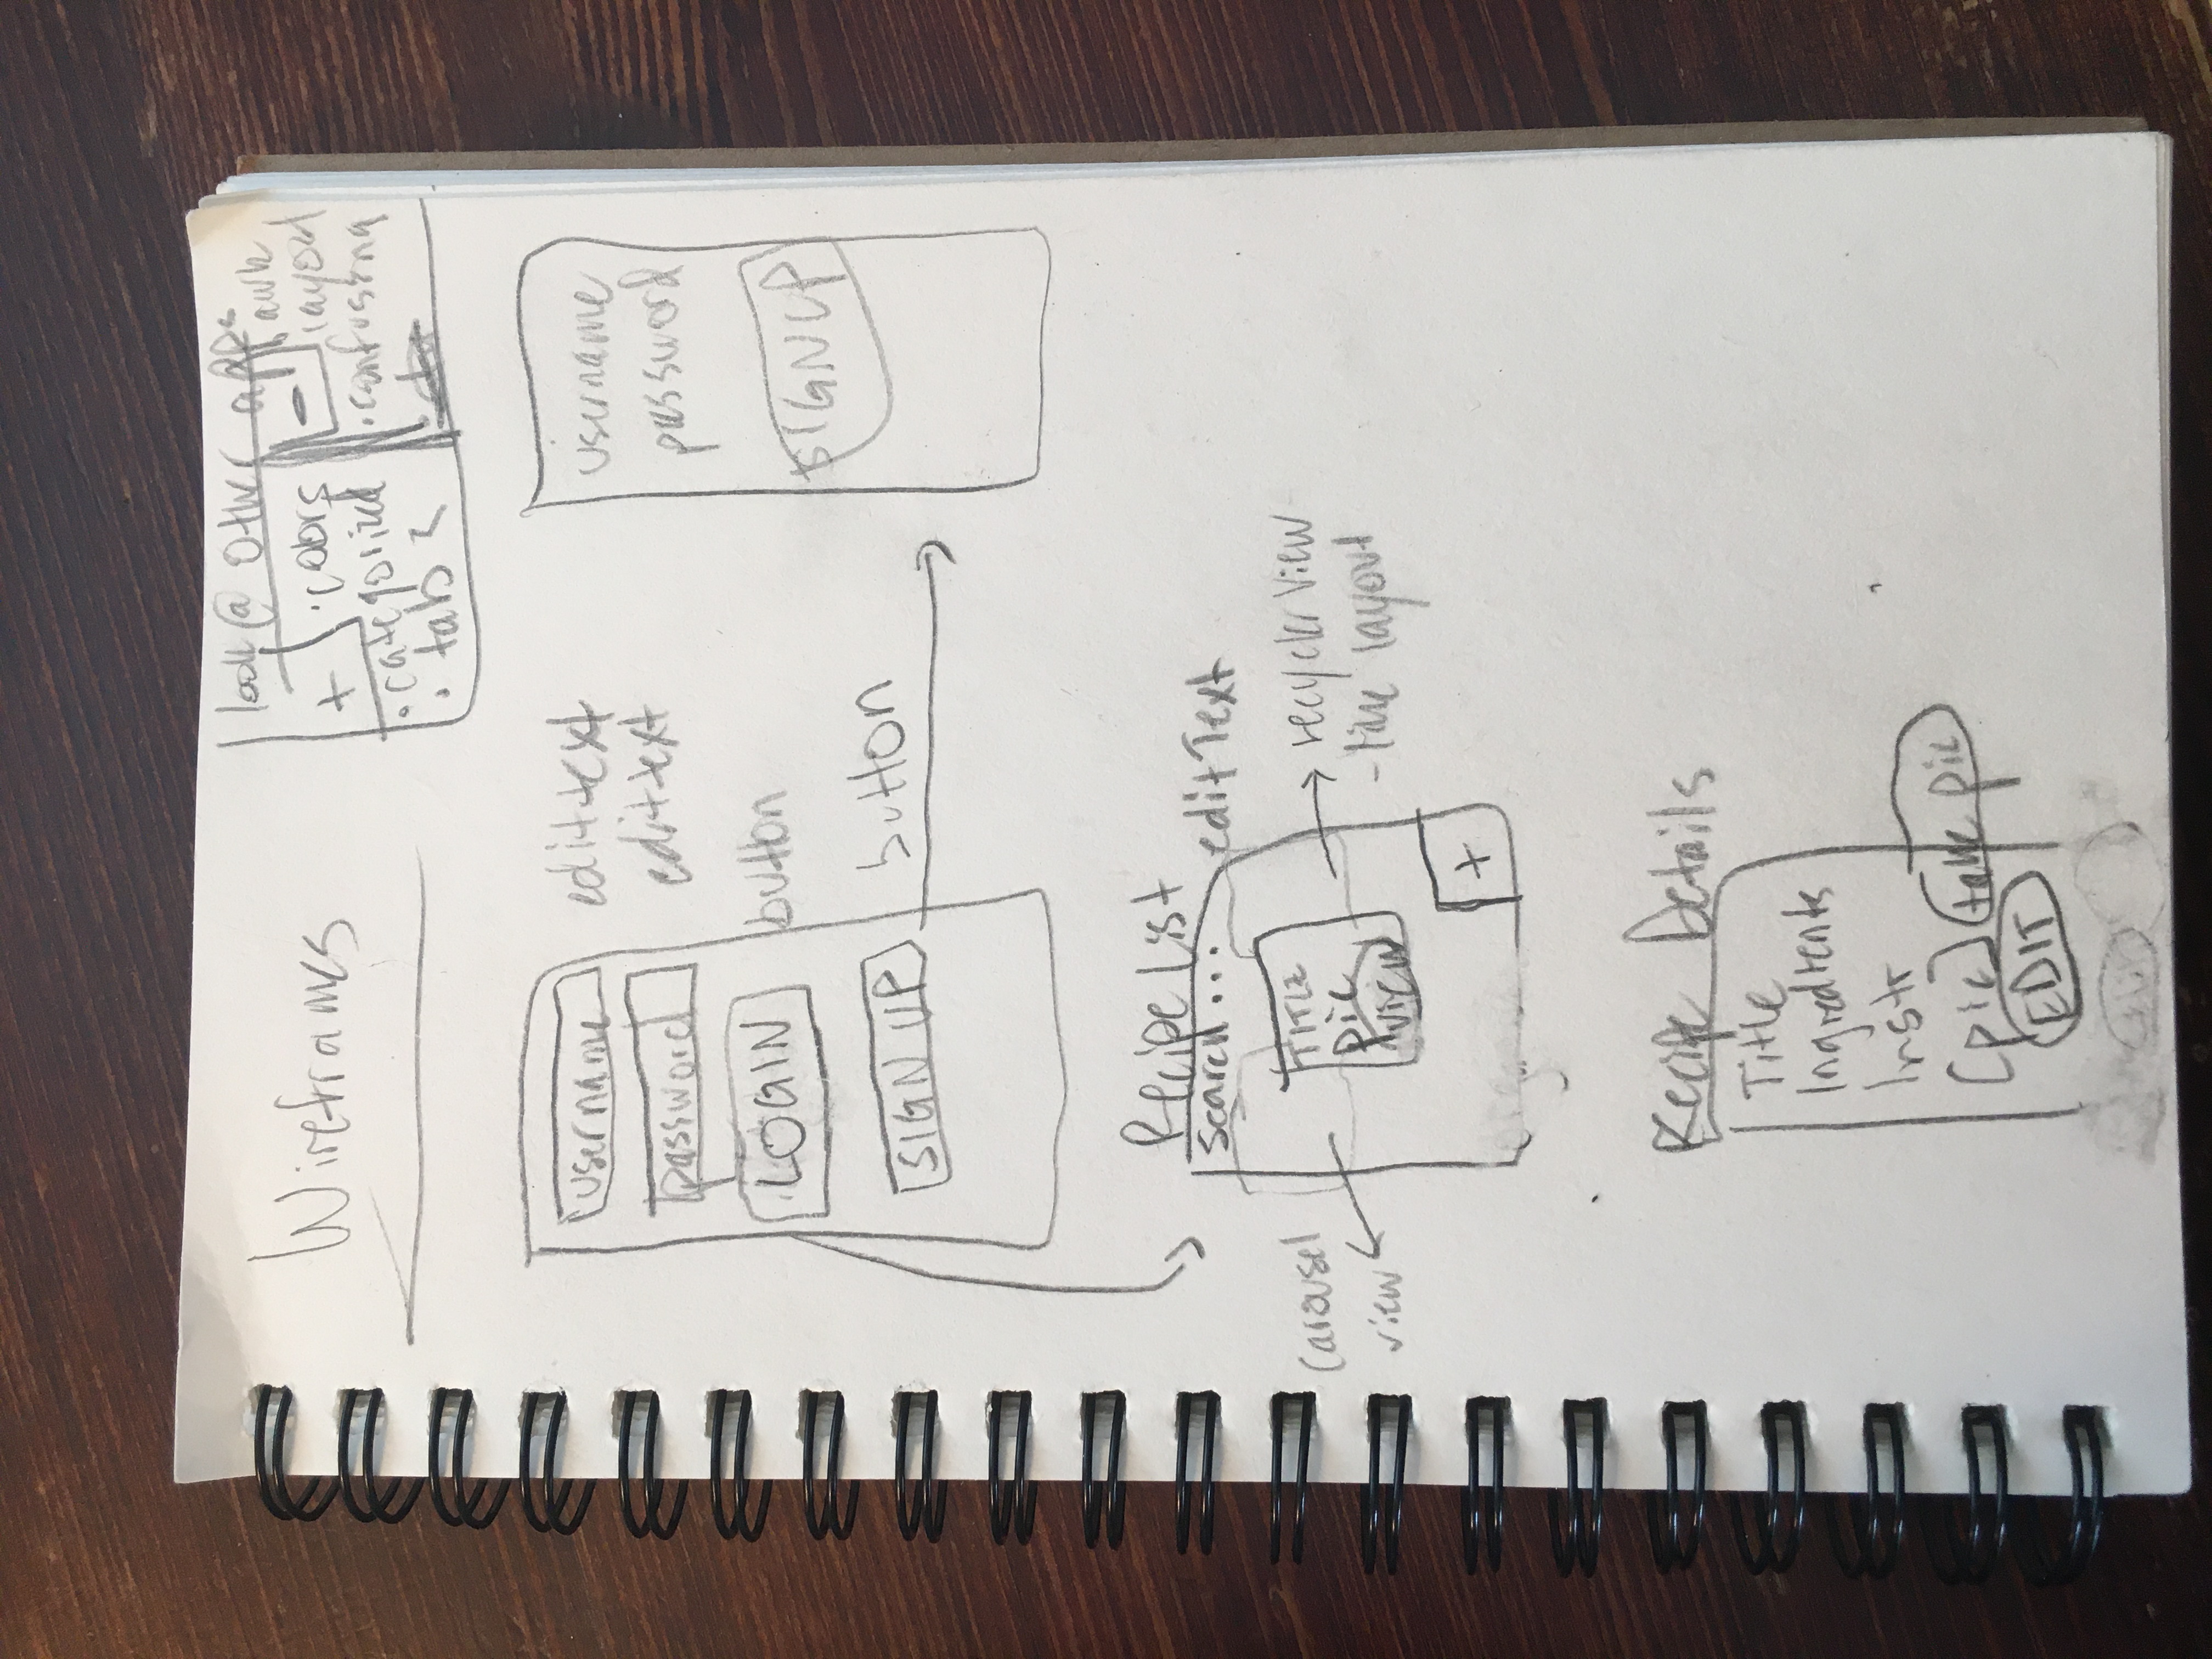 Wireframes
look @ other apps
+
• colors
• categorized
• tabs ?
-
• awk
layout
• confusing
username
edit text
password
edit text
LOGIN
button
SIGN UP
button
username
password
SIGN UP
Recipe List
Search...
editText
TITLE
pic
view
carousel
view
recycler View
- line layout
+
Recipe Details
Title
Ingredients
Instr
[pic]
take pic
EDIT